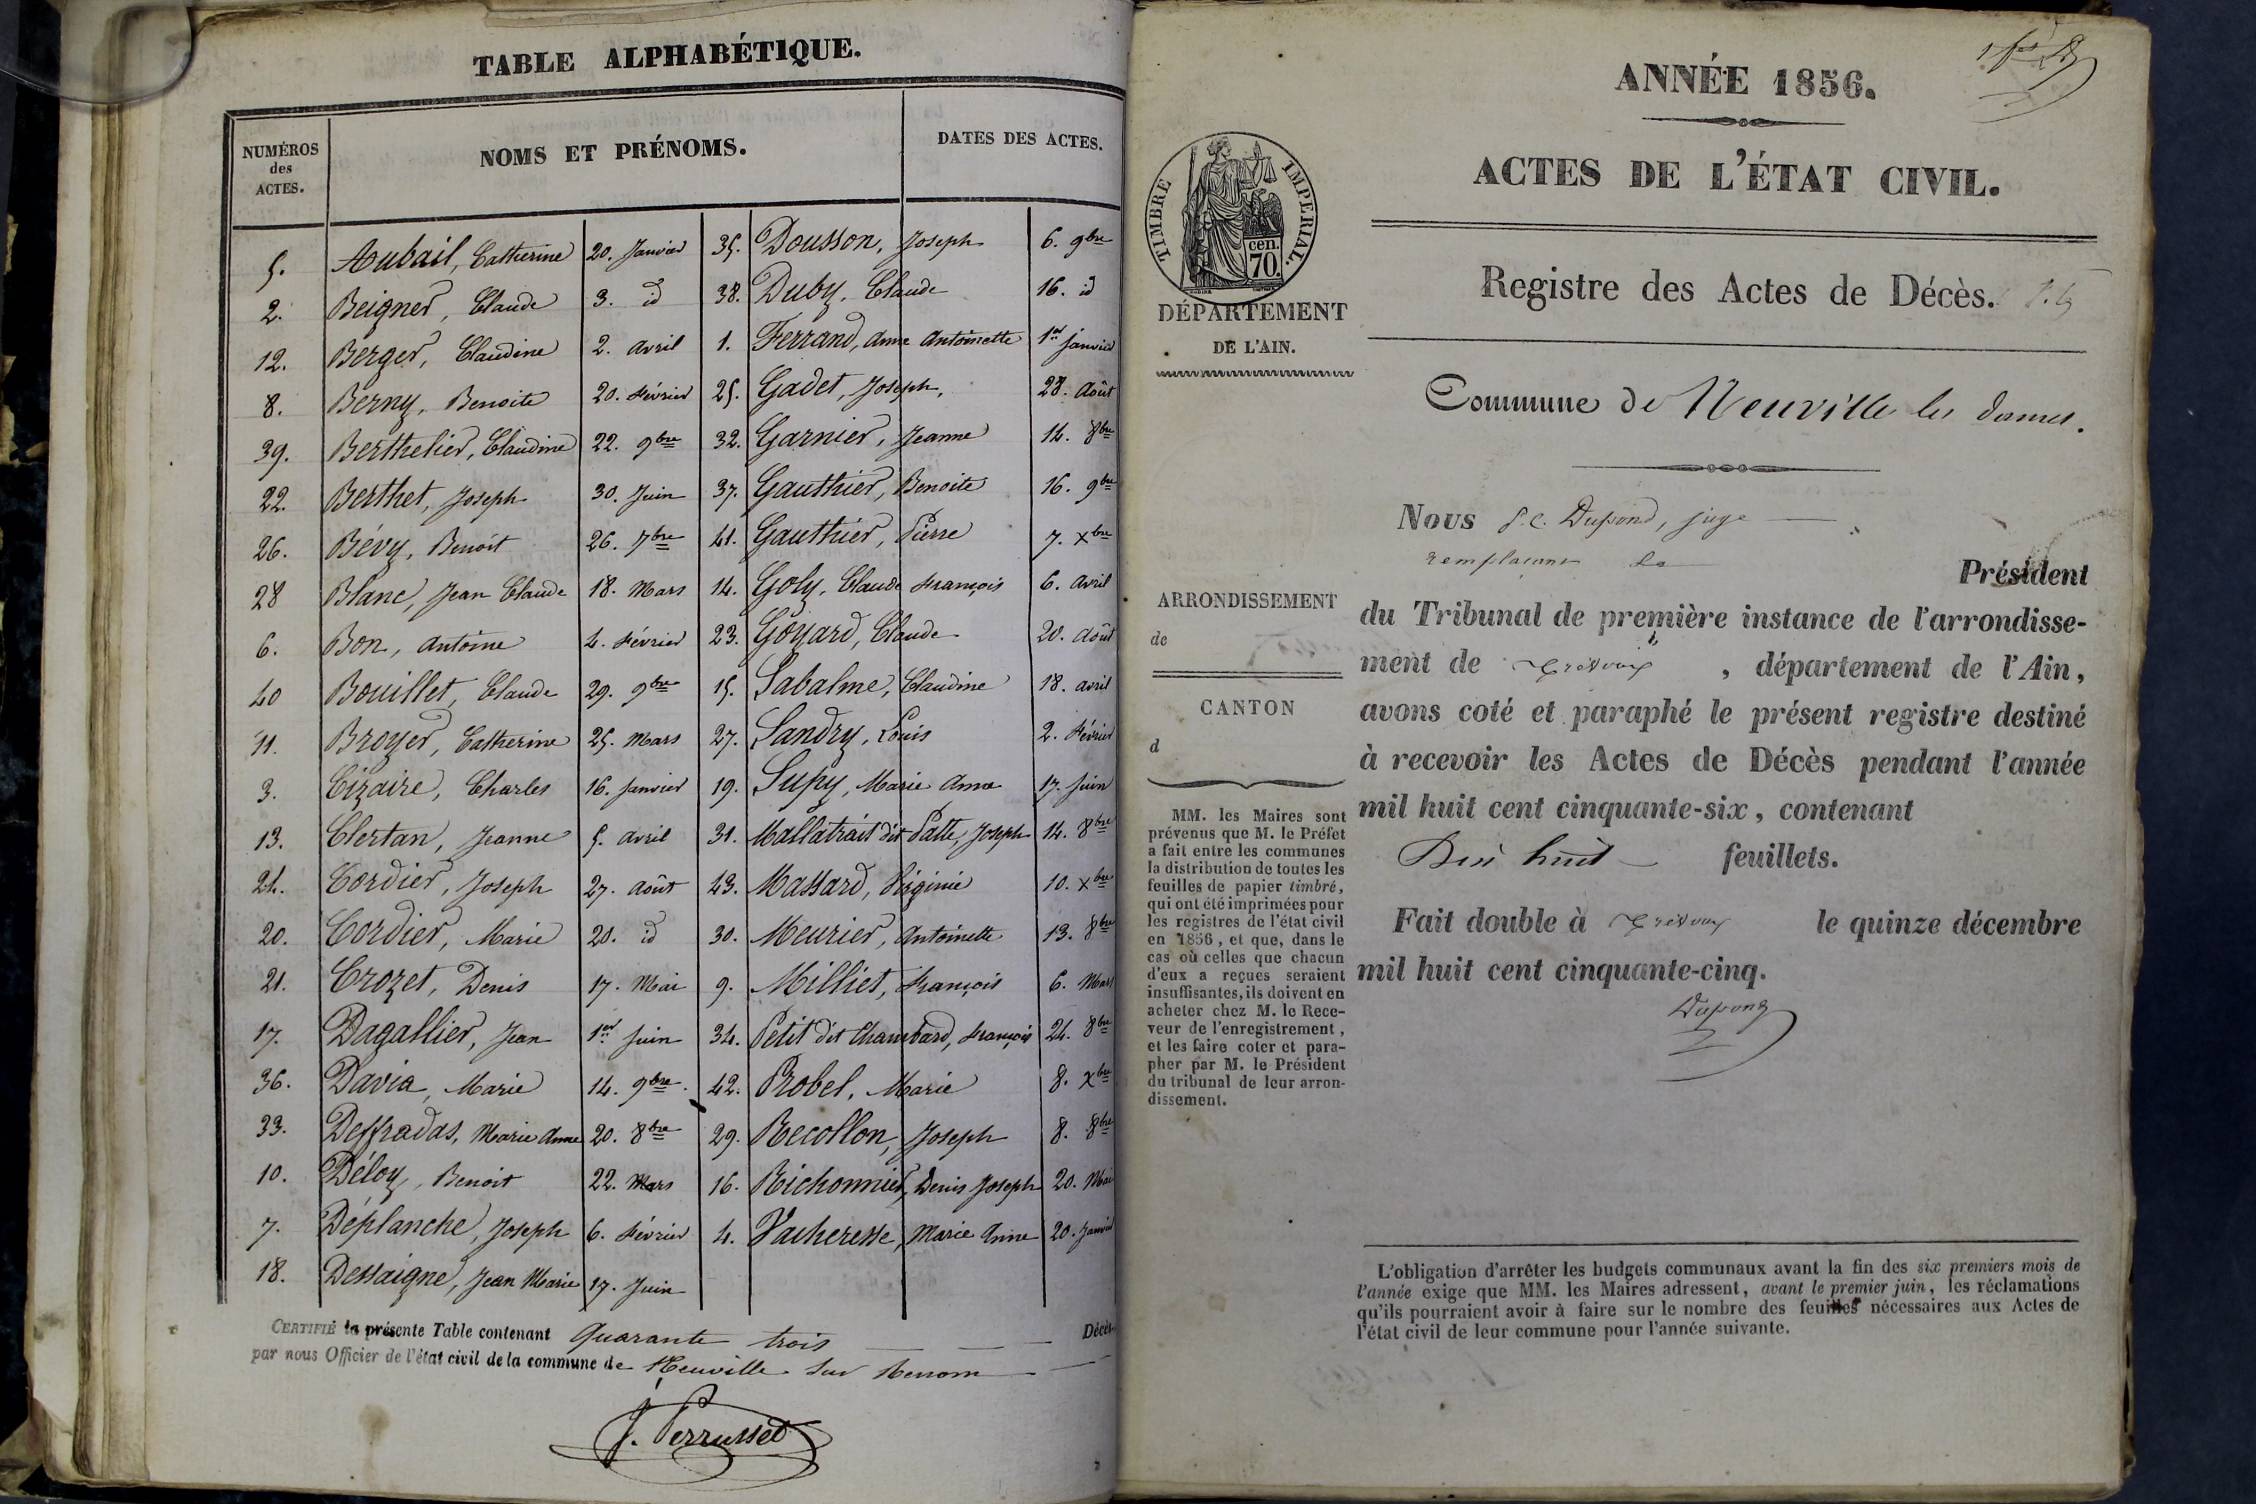 TABLE ALPHABÉTIQUE.
NUMÉROS
des
ACTES.
NOMS ET PRÉNOMS.
DATES DES ACTES.
5. Aubail, Catherine 20. Janvier
2. Beigner, Claude 3. id
12. Berger, Claudine 2. avril
8. Berny, Benoite 20. Février
39. Berthelier, Claudine 22. 9bre
22. Berthet, Joseph 30. Juin
26. Bévy, Benoit 26. 7bre
28 Blanc, Jean Claude 18. Mars
6. Bon, Antoine 4. Février
40 Bouillet, Claude 29. 9bre
11. Broyer, Catherine 25. Mars
3. Cizaire, Charles 16. Janvier
13. Clertan, Jeanne 5. avril
24. Cordier, Joseph 27. Août
20. Cordier, Marie 20. id
21. Crozet, Denis 17. Mai
17. Dagallier, Jean 1er Juin
36. Davia, Marie 14. 9bre
33. Deffradas, Marie Anne 20. 8bre
10. Déloy, Benoit 22. Mars
7. Déplanche, Joseph 6. Février
18. Dessaigne, Jean Marie 17. Juin
35. Dousson, Joseph 6. 9bre
38. Duby, Claude 16. id
1. Ferrand, Anne Antoinette 1er Janvier
25. Gadet, Joseph, 28. Août
32. Garnier, Jeanne 14. 8bre
37. Gauthier, Benoite 16. 9bre
41. Gauthier, Pierre 7. Xbre
14. Goly, Claude François 6. Avril
23. Goyard, Claude 20. Août
15. Labalme, Claudine 18. avril
27. Landry, Louis 2. Février
19. Lupy, Marie Anne 17. Juin
31. Mallatrait dit Patte, Joseph 14. 8bre
43. Massard, Virginie 10. Xbre
30. Meurier, Antoinette 13. 8bre
9. Milliet, François 6. Mars
34. Petit dit Chambard, François 24. 8bre
42. Robel, Marie 8. Xbre
29. Recollon, Joseph 8. 8bre
16. Richonnier, Denis Joseph 20. Mai
4. Vacheresse, Marie Anne 20. Janvier
CERTIFIÉ la présente Table contenant Quarante trois Décès
par nous Officier de l'état civil de la commune de Neuville sur Renom
J. Perrusset
ANNÉE 1856.
ACTES DE L'ÉTAT CIVIL.
TIMBRE IMPERIAL.
cen.
70.
DÉPARTEMENT
DE L'AIN.
Registre des Actes de Décès.
Commune de Neuville les dames.
Nous J. C. Dupond, juge
remplaçant le
Président
du Tribunal de première instance de l'arrondisse-
ment de Trévoux, département de l'Ain,
avons coté et paraphé le présent registre destiné
à recevoir les Actes de Décès pendant l'année
mil huit cent cinquante-six, contenant
Dix huit feuillets.
Fait double à Trévoux le quinze décembre
mil huit cent cinquante-cinq.
Dupond
ARRONDISSEMENT
de
CANTON
d
MM. les Maires sont
prévenus que M. le Préfet
a fait entre les communes
la distribution de toutes les
feuilles de papier timbré,
qui ont été imprimées pour
les registres de l'état civil
en 1856, et que, dans le
cas où celles que chacun
d'eux a reçues seraient
insuffisantes, ils doivent en
acheter chez M. le Rece-
veur de l'enregistrement,
et les faire coter et para-
pher par M. le Président
du tribunal de leur arron-
dissement.
L'obligation d'arrêter les budgets communaux avant la fin des six premiers mois de
l'année exige que MM. les Maires adressent, avant le premier juin, les réclamations
qu'ils pourraient avoir à faire sur le nombre des feuilles nécessaires aux Actes de
l'état civil de leur commune pour l'année suivante.